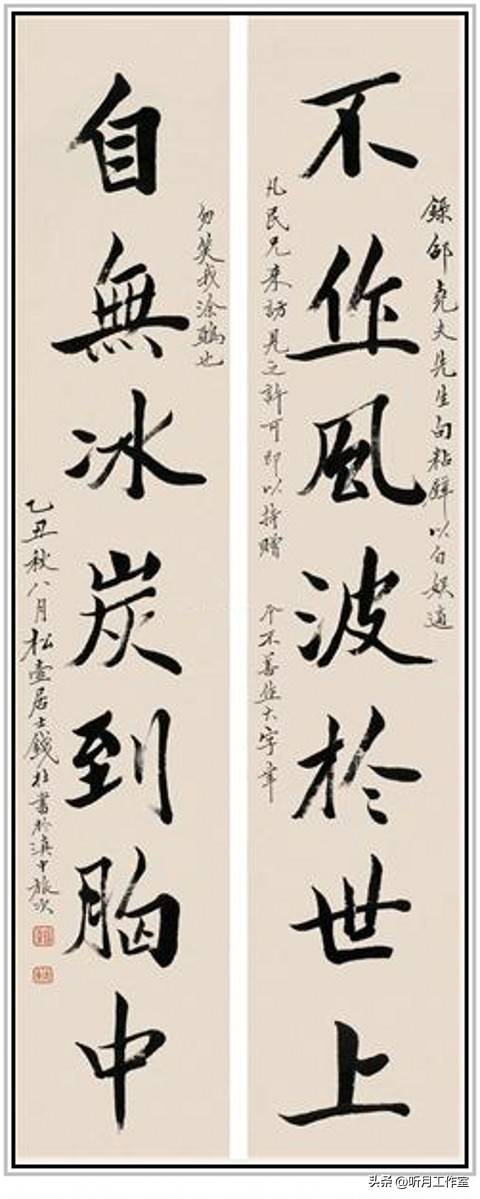 錄邵堯夫先生句粘壁以自娱適
不作風波於世上
凡民兄来訪見之許可即以持贈 余不善作大字幸
勿笑我塗鴉也
自無冰炭到胸中
乙丑秋八月松壶居士錢杜書於滇中旅次
头条@听月工作室